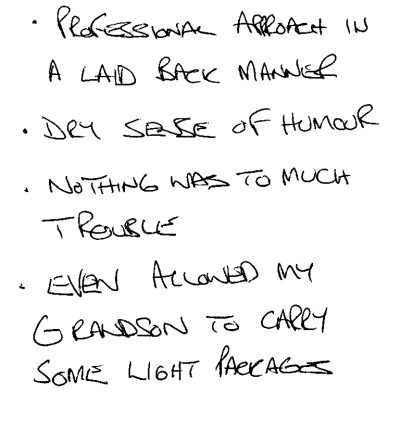 · PROFESSIONAL APPROACH IN
A LAID BACK MANNER
· DRY SENSE OF HUMOUR
· NOTHING WAS TO MUCH
TROUBLE
· EVEN ALLOWED MY
GRANDSON TO CARRY
SOME LIGHT PACKAGES